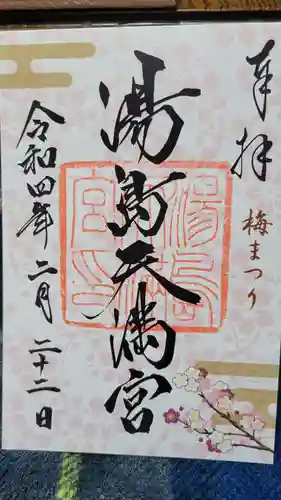 奉拝
梅まつり
湯島天満宮
令和四年二月二十二日